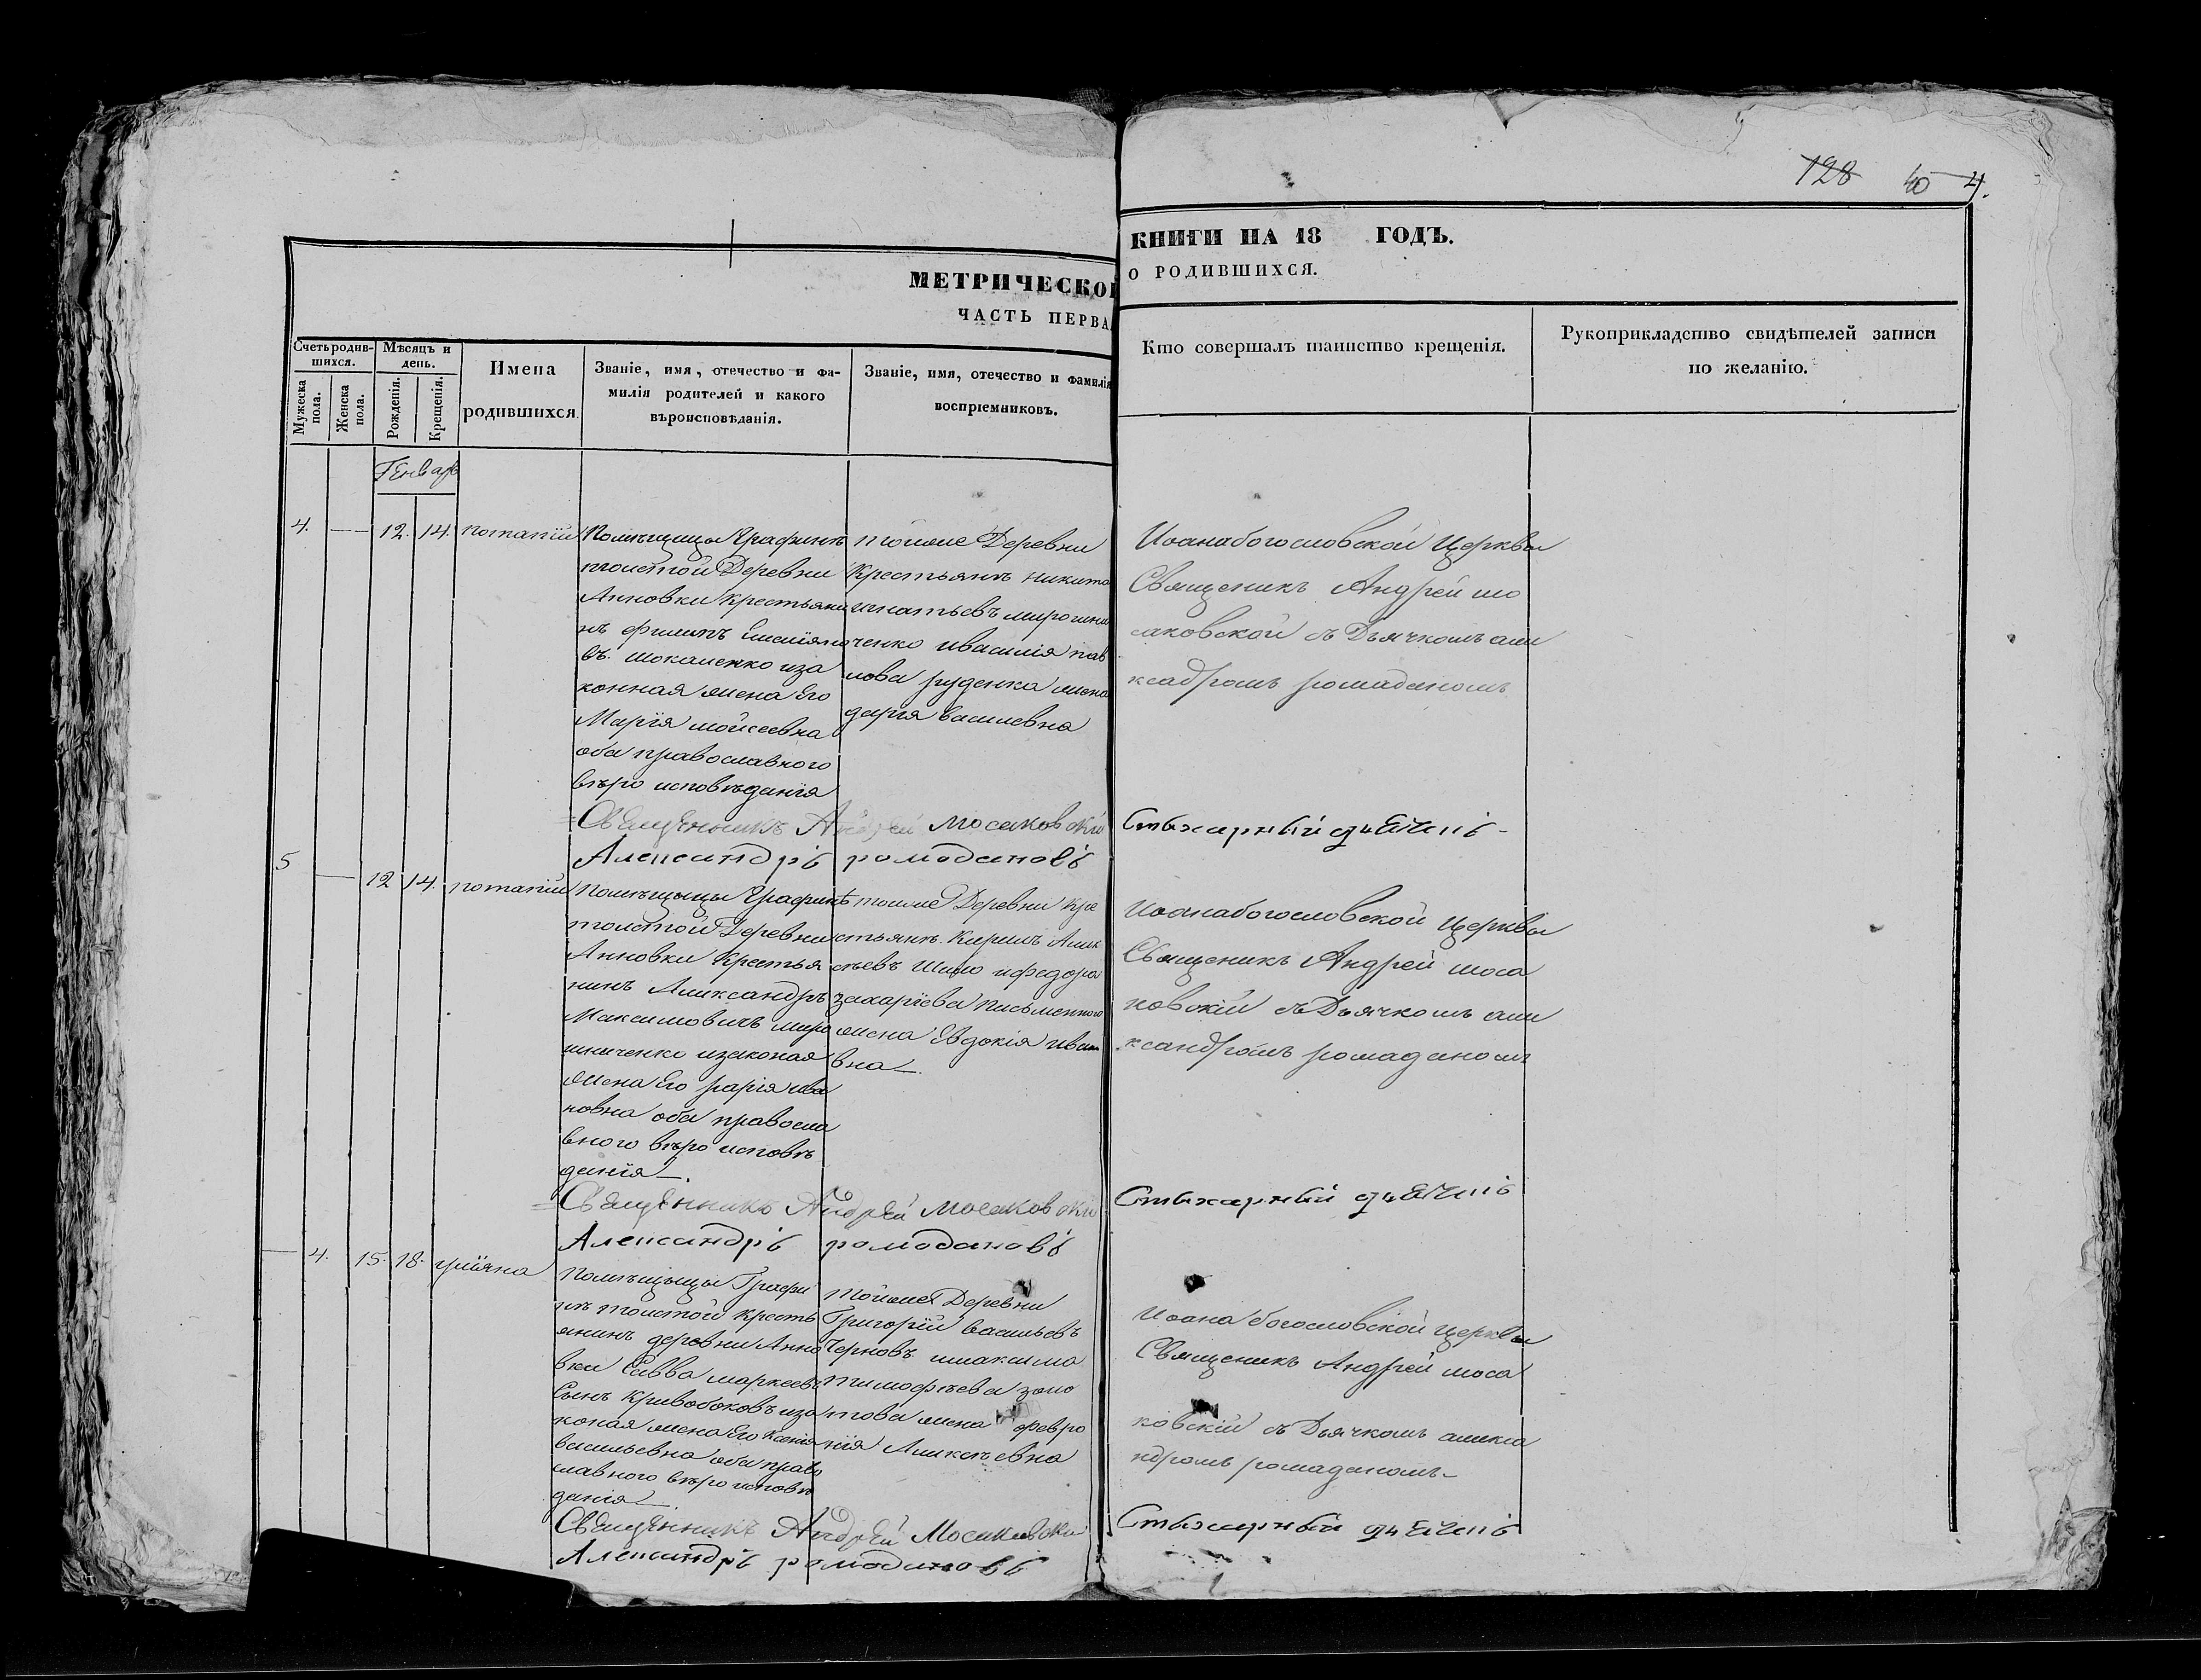 128 40 4.
МЕТРИЧЕСКОЙ КНИГИ НА 18 ГОДЪ.
ЧАСТЬ ПЕРВА О РОДИВШИХСЯ.
Счетъ родив-
шихся.
Мужеска
пола.
Женска
пола.
Мѣсяцъ и
день.
Рожденія.
Крещенія.
Имена
родившихся.
Званіе, имя, отечество и фа-
милія родителей и какого
вѣроисповѣданія.
Званіе, имя, отечество и фамилія
воспріемниковъ.
Кто совершалъ таинство крещенія.
Рукоприкладство свидѣтелей записи
по желанію.
Генварь
4. — 12. 14. потапій
Помѣщицы Графинѣ
толстой Деревни
Анновки крестьяни
нъ филипъ Емелiяно
въ. Мокаленко иза
конная жена Его
Марія мойсеевна
оба православного
вѣро исповѣданія
тойже Деревни
Крестьянъ никита
игнатьевъ мирошни
ченко ивасилія пав
лова руденка жена
дарія василевна
Иоанабогословской Церквы
Священикъ Андрей мо
саковской съ Дьячкомъ али
ксадромъ ромаданомъ
Священникъ Андрей Мосаковскій
Александръ ромодановъ
Стихарный дьячекъ
5 — 12 14. потапій
Помѣщыцы Графинѣ
толстой Деревни
Анновки Крестья
нинъ Александръ
Максимовичъ миро
шниченко изаконая
жена Его дарія ива
новна оба правосла
вного вѣро исповѣ
данія—.
тойже Деревни Кре
стьянъ. Кирилъ Алик
сѣевъ Шило ифедора
захаріева письменного
жена Евдокія ивано
вна—.
Иоанабогословской Церквы
Священикъ Андрей моса
ковскій съ Дьячкомъ али
ксандромъ ромаданом
Священникъ Андрей Мосаковскій
Александръ ромодановъ
Стихарный дьячекъ
— 4. 15. 18. уліяна
Помѣщыцы Графи
нѣ толстой кресть
янинъ деревни Анно
вки Савва маркеевъ
Сынъ Кривобоковъ иза
коная жена Его Ксенія
васильевна оба право
славного вѣро исповѣ
данія—.
тойже Деревни
Григорій васильевъ
Черновъ имаксима
тимофѣева золо
това жена февро
нія Аликсѣевна
Иоана богословской церквы
Священикъ Андрей моса
ковскій съ Дьячкомъ алекса
ндромъ ромаданомъ—
Священникъ Андрей Мосаковскій
Александръ ромодановъ
Стихарный дьячекъ